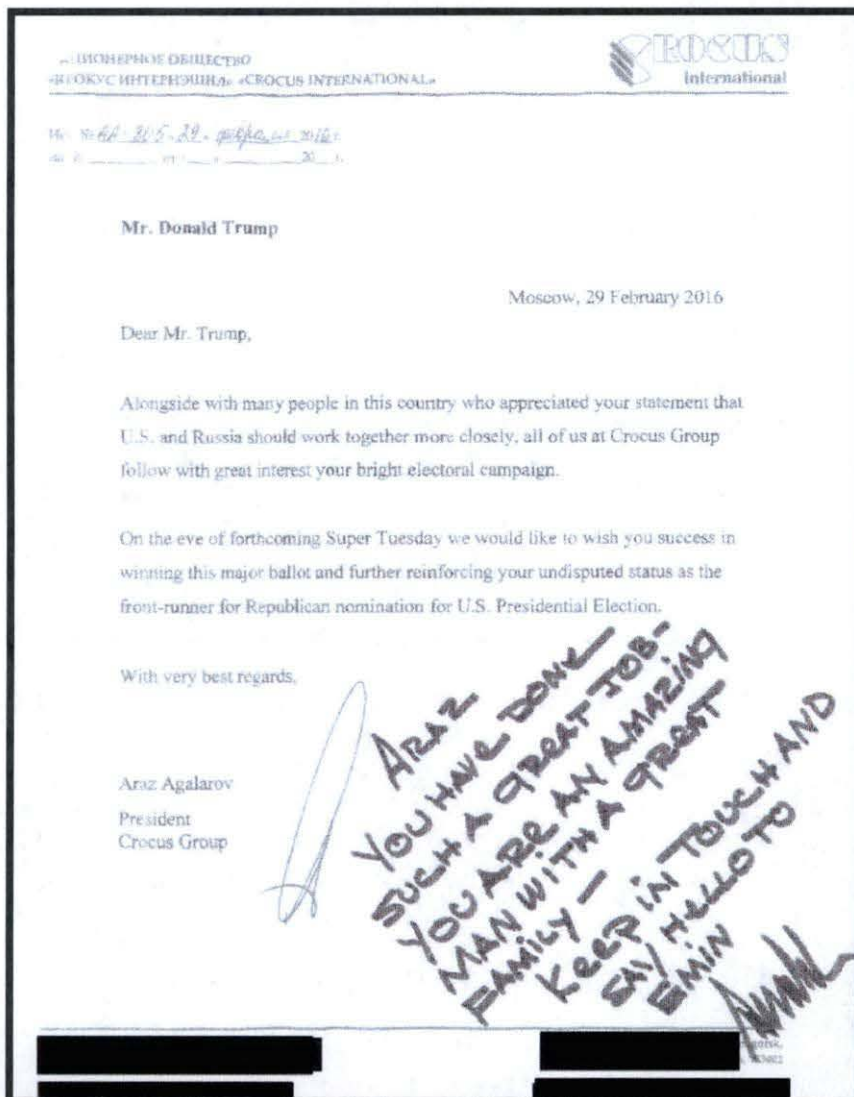 АКЦИОНЕРНОЕ ОБЩЕСТВО
«КРОКУС ИНТЕРНЭШНЛ» «CROCUS INTERNATIONAL»
CROCUS
International
2016 г.
20 г.
Mr. Donald Trump
Moscow, 29 February 2016
Dear Mr. Trump,
Alongside with many people in this country who appreciated your statement that
U.S. and Russia should work together more closely, all of us at Crocus Group
follow with great interest your bright electoral campaign.
On the eve of forthcoming Super Tuesday we would like to wish you success in
winning this major ballot and further reinforcing your undisputed status as the
front-runner for Republican nomination for U.S. Presidential Election.
With very best regards,
Araz Agalarov
President
Crocus Group
ARAZ
YOU HAVE DONE
SUCH A GREAT JOB-
YOU ARE AN AMAZING
MAN WITH A GREAT
FAMILY —
KEEP IN TOUCH AND
SAY HELLO TO
EMIN